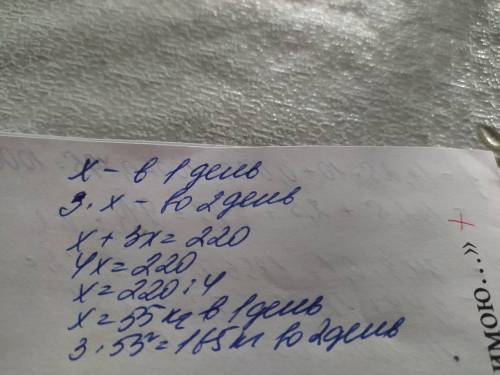 x - в 1 день
3·x - во 2 день
x + 3x = 220
4x = 220
x = 220 : 4
x = 55 кг в 1 день
3·55 = 165 кг во 2 день
+
мою...»